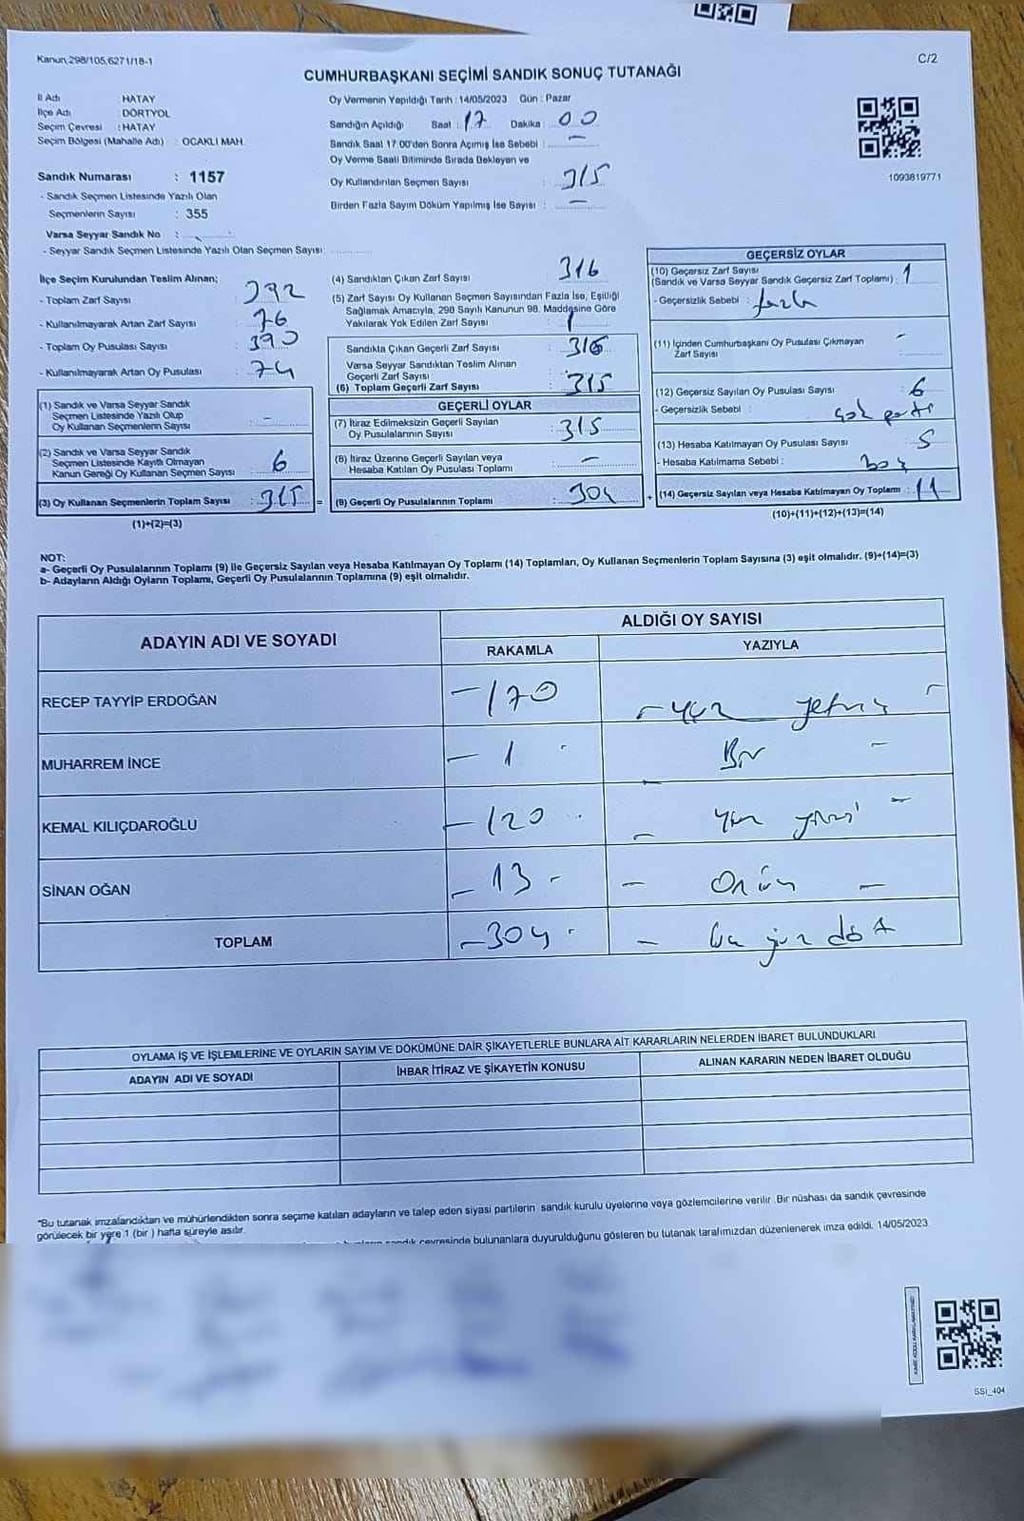 Kanun 298/105,6271/18-1
C/2
CUMHURBAŞKANI SEÇİMİ SANDIK SONUÇ TUTANAĞI
İl Adı HATAY
İlçe Adı DÖRTYOL
Seçim Çevresi : HATAY
Seçim Bölgesi (Mahalle Adı) : OCAKLI MAH.
Sandık Numarası : 1157
- Sandık Seçmen Listesinde Yazılı Olan
Seçmenlerin Sayısı : 355
Varsa Seyyar Sandık No :
- Seyyar Sandık Seçmen Listesinde Yazılı Olan Seçmen Sayısı
Oy Vermenin Yapıldığı Tarih : 14/05/2023 Gün : Pazar
Sandığın Açıldığı Saat : 17 Dakika : 00
Sandık Saat 17.00'den Sonra Açımış İse Sebebi : -
Oy Verme Saati Bitiminde Sırada Bekleyen ve
Oy Kullandırılan Seçmen Sayısı : 315
Birden Fazla Sayım Döküm Yapılmış İse Sayısı : -
1093819771
İlçe Seçim Kurulundan Teslim Alınan;
- Toplam Zarf Sayısı : 392
- Kullanılmayarak Artan Zarf Sayısı : 76
- Toplam Oy Pusulası Sayısı : 390
- Kullanılmayarak Artan Oy Pusulası : 74
(1) Sandık ve Varsa Seyyar Sandık
Seçmen Listesinde Yazılı Olup
Oy Kullanan Seçmenlerin Sayısı : -
(2) Sandık ve Varsa Seyyar Sandık
Seçmen Listesinde Kayıtlı Olmayan
Kanun Gereği Oy Kullanan Seçmen Sayısı : 6
(3) Oy Kullanan Seçmenlerin Toplam Sayısı : 315 =
(1)+(2)=(3)
(4) Sandıktan Çıkan Zarf Sayısı : 316
(5) Zarf Sayısı Oy Kullanan Seçmen Sayısından Fazla İse, Eşitliği
Sağlamak Amacıyla, 298 Sayılı Kanunun 98. Maddesine Göre
Yakılarak Yok Edilen Zarf Sayısı : 1
Sandıkta Çıkan Geçerli Zarf Sayısı : 316
Varsa Seyyar Sandıktan Teslim Alınan
Geçerli Zarf Sayısı :
(6) Toplam Geçerli Zarf Sayısı : 315
GEÇERLİ OYLAR
(7) İtiraz Edilmeksizin Geçerli Sayılan
Oy Pusulalarının Sayısı : 315
(8) İtiraz Üzerine Geçerli Sayılan veya
Hesaba Katılan Oy Pusulası Toplamı : -
(9) Geçerli Oy Pusulalarının Toplamı : 304 +
GEÇERSİZ OYLAR
(10) Geçersiz Zarf Sayısı
(Sandık ve Varsa Seyyar Sandık Geçersiz Zarf Toplamı) : 1
- Geçersizlik Sebebi : fazla
(11) İçinden Cumhurbaşkanı Oy Pusulası Çıkmayan
Zarf Sayısı : -
(12) Geçersiz Sayılan Oy Pusulası Sayısı : 6
- Geçersizlik Sebebi : parti
(13) Hesaba Katılmayan Oy Pusulası Sayısı : 5
- Hesaba Katılmama Sebebi : boş
(14) Geçersiz Sayılan veya Hesaba Katılmayan Oy Toplamı : 11
(10)+(11)+(12)+(13)=(14)
NOT:
a- Geçerli Oy Pusulalarının Toplamı (9) ile Geçersiz Sayılan veya Hesaba Katılmayan Oy Toplamı (14) Toplamları, Oy Kullanan Seçmenlerin Toplam Sayısına (3) eşit olmalıdır. (9)+(14)=(3)
b- Adayların Aldığı Oyların Toplamı, Geçerli Oy Pusulalarının Toplamına (9) eşit olmalıdır.
ADAYIN ADI VE SOYADI
ALDIĞI OY SAYISI
RAKAMLA
YAZIYLA
RECEP TAYYİP ERDOĞAN - 170 - yüz yetmiş -
MUHARREM İNCE - 1 - Bir -
KEMAL KILIÇDAROĞLU - 120 - yüz yirmi -
SİNAN OĞAN - 13 - - Onüç -
TOPLAM - 304 - - üç yüz dört
OYLAMA İŞ VE İŞLEMLERİNE VE OYLARIN SAYIM VE DÖKÜMÜNE DAİR ŞİKAYETLERLE BUNLARA AİT KARARLARIN NELERDEN İBARET BULUNDUKLARI
ADAYIN ADI VE SOYADI
İHBAR İTİRAZ VE ŞİKAYETİN KONUSU
ALINAN KARARIN NEDEN İBARET OLDUĞU
"Bu tutanak imzalandıktan ve mühürlendikten sonra seçime katılan adayların ve talep eden siyasi partilerin sandık kurulu üyelerine veya gözlemcilerine verilir. Bir nüshası da sandık çevresinde
görülecek bir yere 1 (bir ) hafta süreyle asılır.
sandık çevresinde bulunanlara duyurulduğunu gösteren bu tutanak tarafımızdan düzenlenerek imza edildi. 14/05/2023
SSI_404